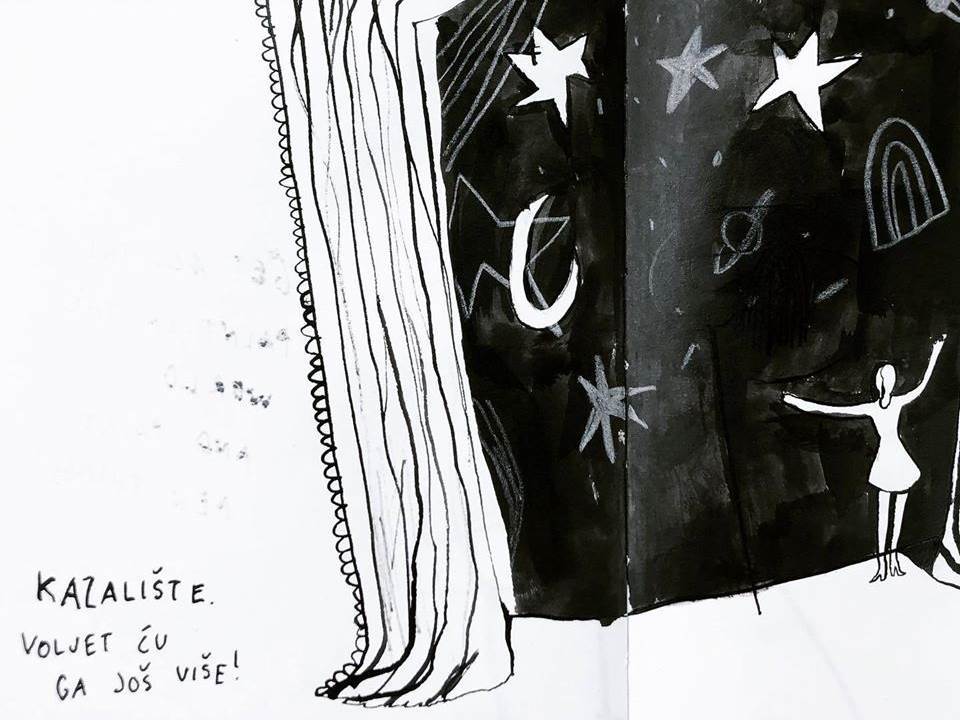 KAZALIŠTE.
VOLJET ĆU
GA JOŠ VIŠE!